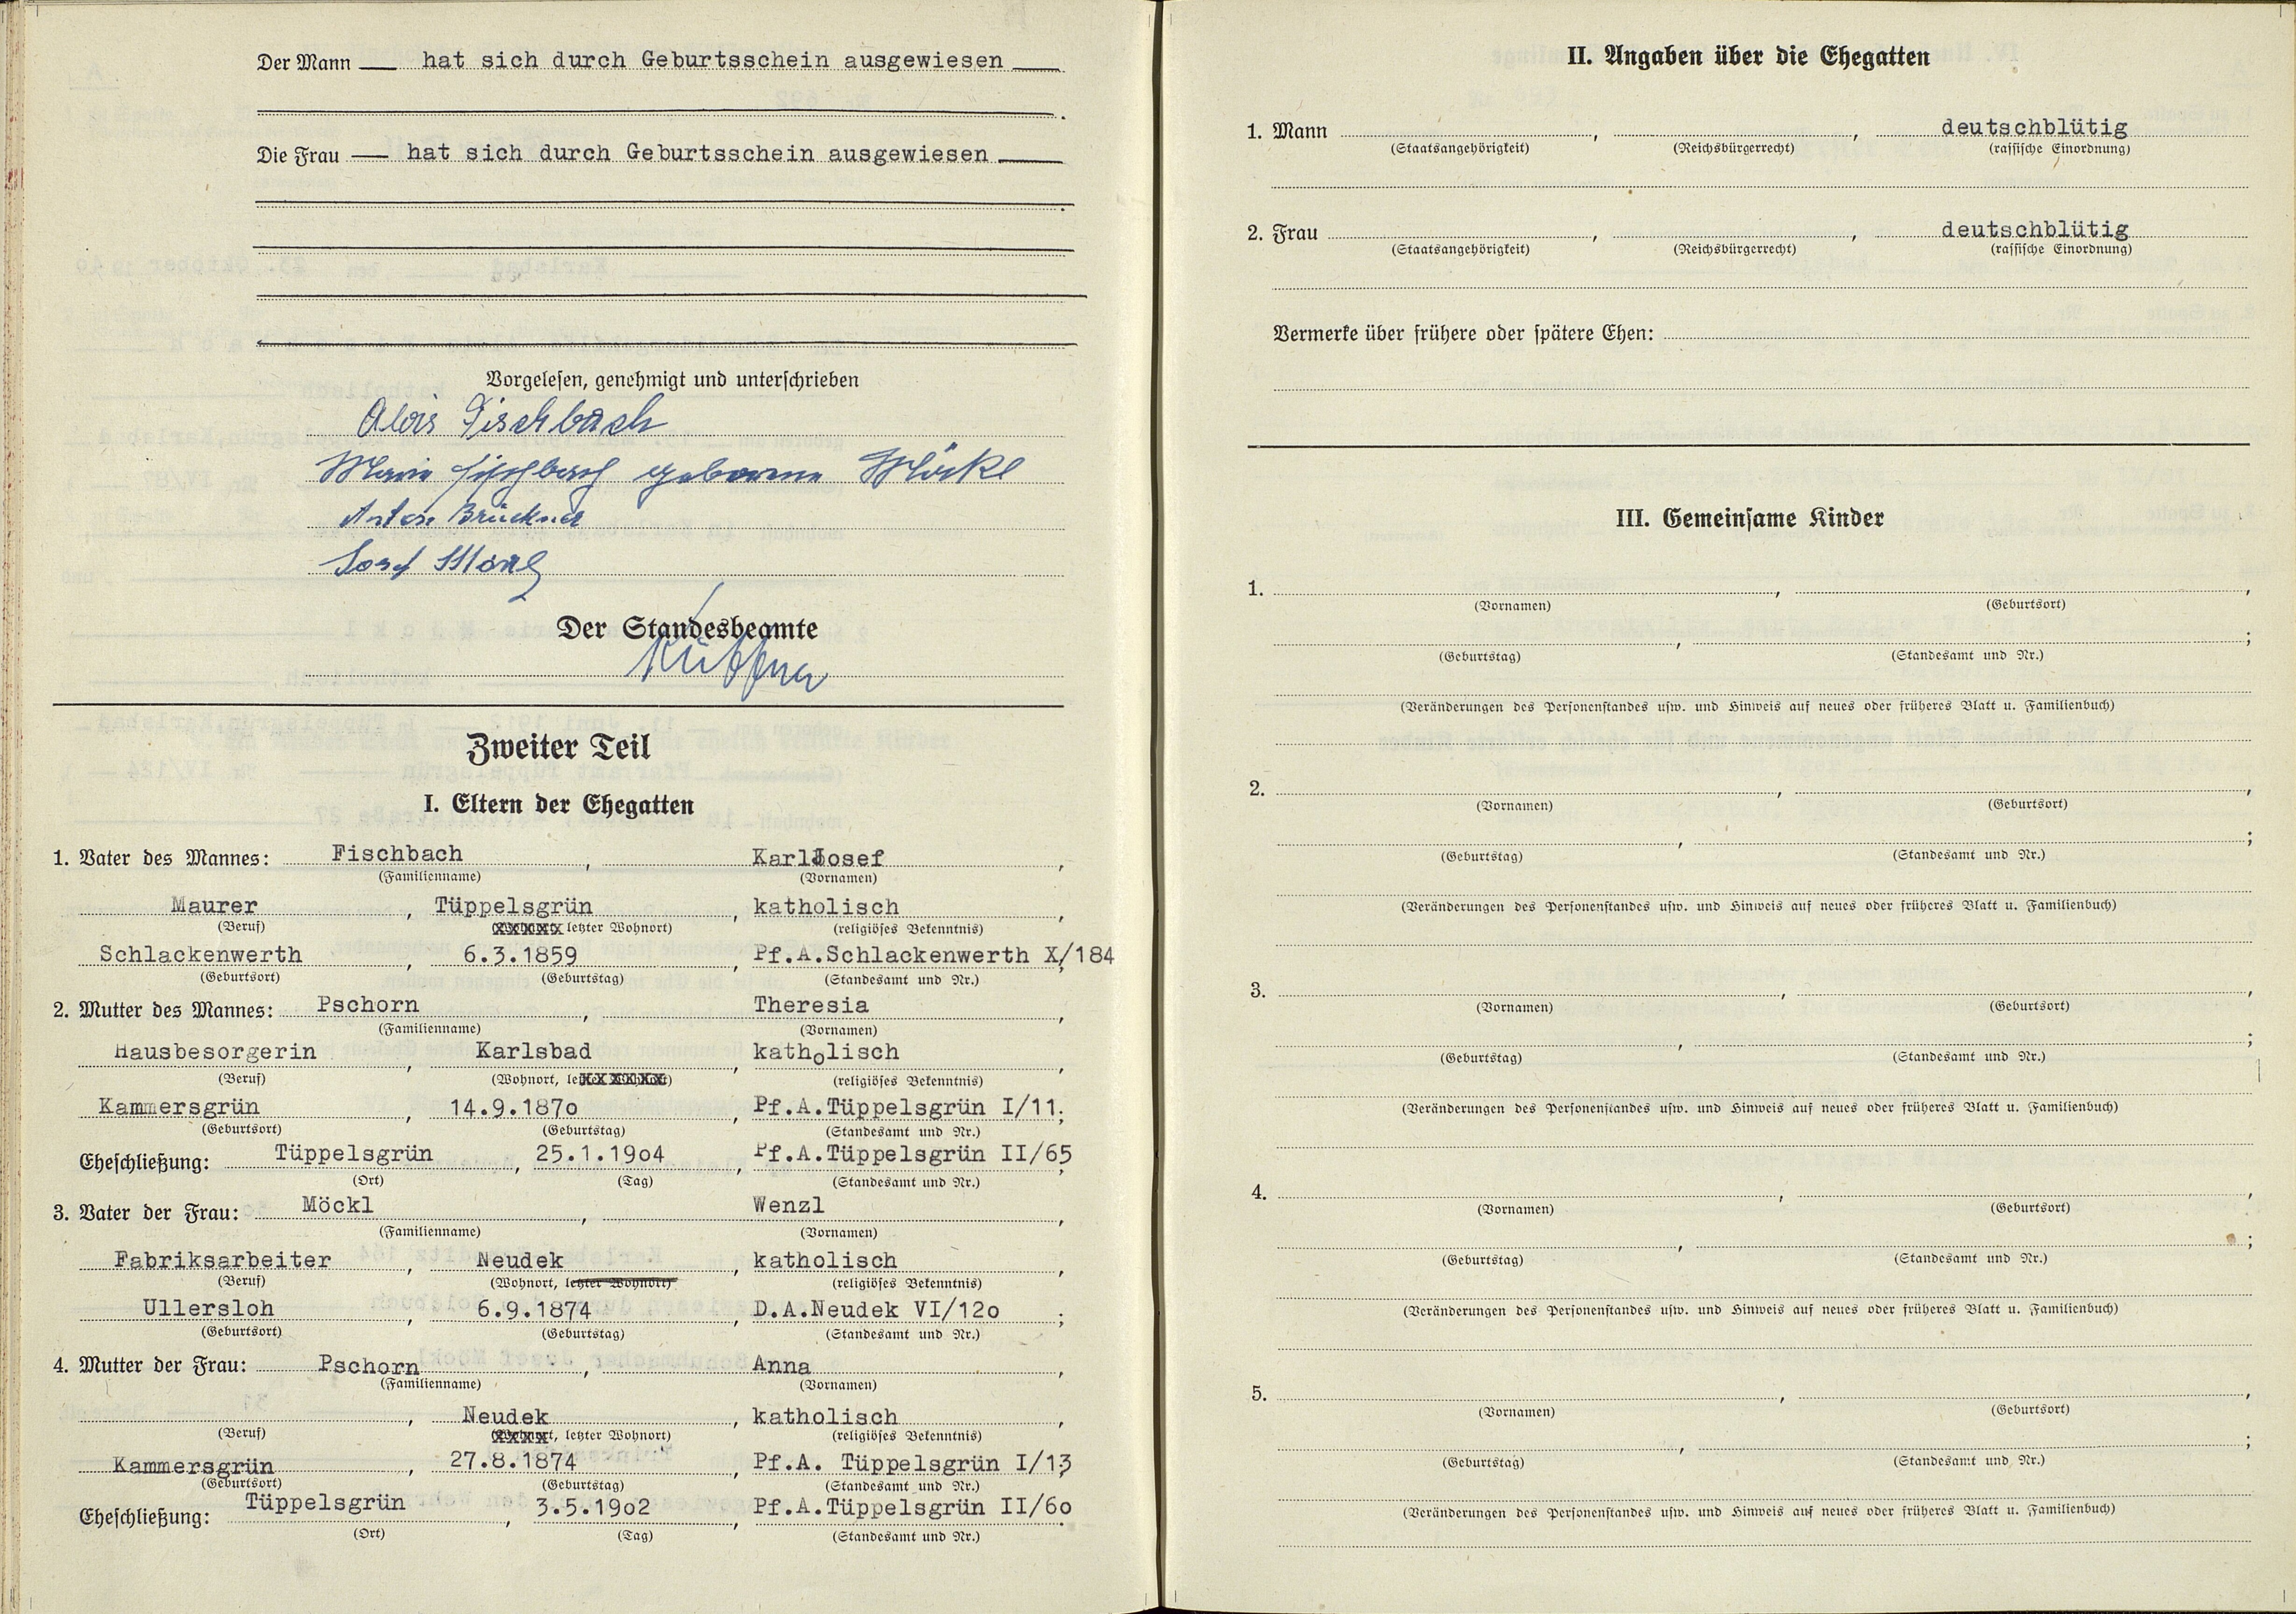 Der Mann hat sich durch Geburtsschein ausgewiesen
Die Frau hat sich durch Geburtsschein ausgewiesen
Vorgelesen, genehmigt und unterschrieben
Alois Fischbach
Marie Fischbach geborene Möckl
Anton Brückner
Josef Möckl
Der Standesbeamte
Zweiter Teil
I. Eltern der Ehegatten
1. Vater des Mannes: Fischbach, Karl Josef,
(Familienname) (Vornamen)
Maurer, Tüppelsgrün, katholisch,
(Beruf) letzter Wohnort) (religiöses Bekenntnis)
Schlackenwerth, 6.3.1859, Pf.A.Schlackenwerth X/184;
(Geburtsort) (Geburtstag) (Standesamt und Nr.)
2. Mutter des Mannes: Pschorn, Theresia,
(Familienname) (Vornamen)
Hausbesorgerin, Karlsbad, katholisch,
(Beruf) (Wohnort, letzter Wohnort) (religiöses Bekenntnis)
Kammersgrün, 14.9.1870, Pf.A.Tüppelsgrün I/11;
(Geburtsort) (Geburtstag) (Standesamt und Nr.)
Eheschließung: Tüppelsgrün, 25.1.1904, Pf.A.Tüppelsgrün II/65;
(Ort) (Tag) (Standesamt und Nr.)
3. Vater der Frau: Möckl, Wenzl,
(Familienname) (Vornamen)
Fabriksarbeiter, Neudek, katholisch,
(Beruf) (Wohnort, letzter Wohnort) (religiöses Bekenntnis)
Ullersloh, 6.9.1874, D.A.Neudek VI/120;
(Geburtsort) (Geburtstag) (Standesamt und Nr.)
4. Mutter der Frau: Pschorn, Anna,
(Familienname) (Vornamen)
, Neudek, katholisch,
(Beruf) (Wohnort, letzter Wohnort) (religiöses Bekenntnis)
Kammersgrün, 27.8.1874, Pf.A. Tüppelsgrün I/13;
(Geburtsort) (Geburtstag) (Standesamt und Nr.)
Eheschließung: Tüppelsgrün, 3.5.1902, Pf.A.Tüppelsgrün II/60
(Ort) (Tag) (Standesamt und Nr.)
II. Angaben über die Ehegatten
1. Mann , , deutschblütig
(Staatsangehörigkeit) (Reichsbürgerrecht) (rassische Einordnung)
2. Frau , , deutschblütig
(Staatsangehörigkeit) (Reichsbürgerrecht) (rassische Einordnung)
Vermerke über frühere oder spätere Ehen:
III. Gemeinsame Kinder
1. , ,
(Vornamen) (Geburtsort)
, ;
(Geburtstag) (Standesamt und Nr.)
(Veränderungen des Personenstandes usw. und Hinweis auf neues oder früheres Blatt u. Familienbuch)
2. , ,
(Vornamen) (Geburtsort)
, ;
(Geburtstag) (Standesamt und Nr.)
(Veränderungen des Personenstandes usw. und Hinweis auf neues oder früheres Blatt u. Familienbuch)
3. , ,
(Vornamen) (Geburtsort)
, ;
(Geburtstag) (Standesamt und Nr.)
(Veränderungen des Personenstandes usw. und Hinweis auf neues oder früheres Blatt u. Familienbuch)
4. , ,
(Vornamen) (Geburtsort)
, ;
(Geburtstag) (Standesamt und Nr.)
(Veränderungen des Personenstandes usw. und Hinweis auf neues oder früheres Blatt u. Familienbuch)
5. , ,
(Vornamen) (Geburtsort)
, ;
(Geburtstag) (Standesamt und Nr.)
(Veränderungen des Personenstandes usw. und Hinweis auf neues oder früheres Blatt u. Familienbuch)